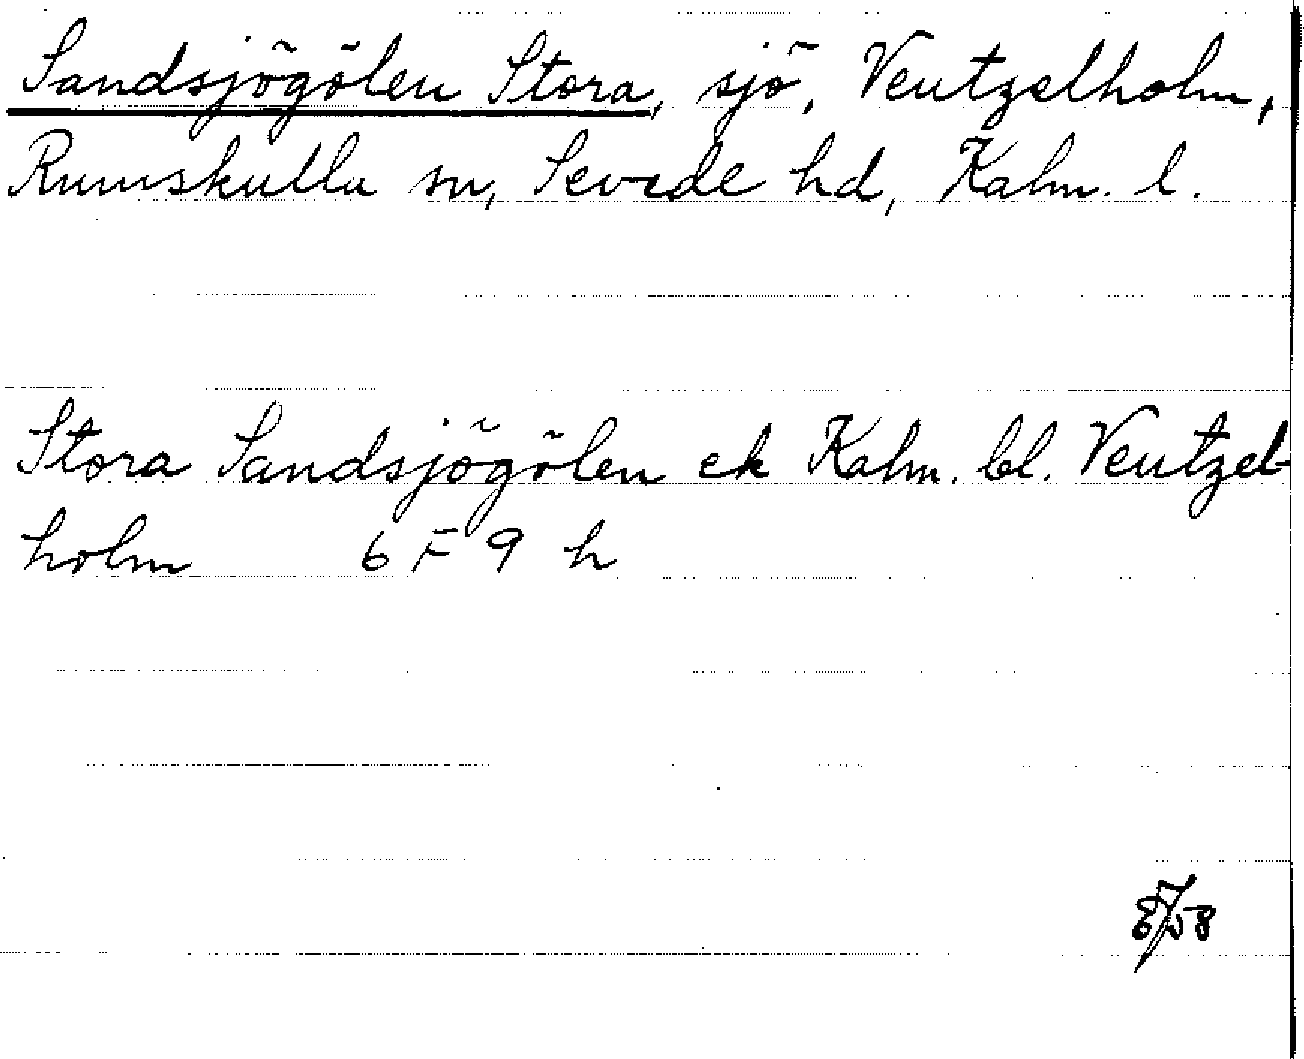 Sandsjögölen Stora, sjö, Ventzelholm,
Rumskulla sn, Sevede hd, Kalm. l.
Stora Sandsjögölen ek Kalm. bl. Ventzel-
holm 6 F 9 h